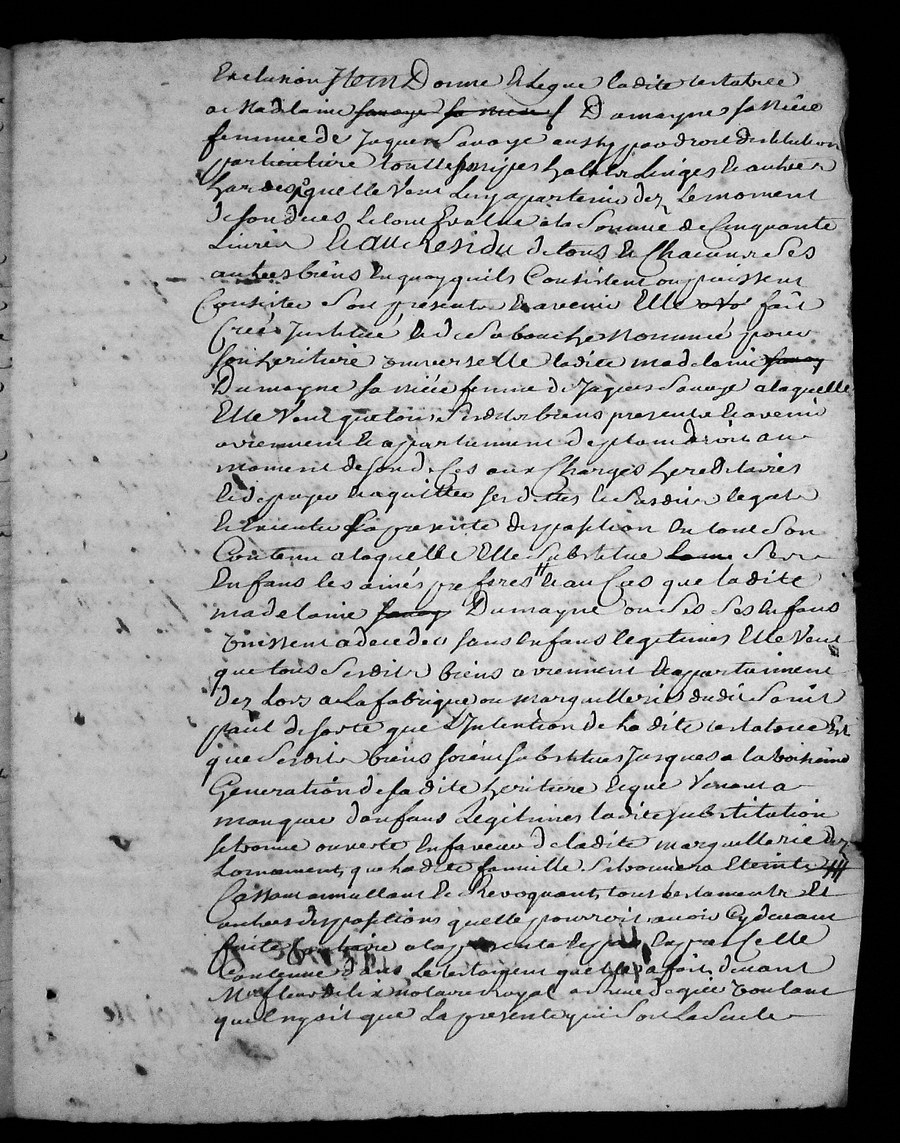 Exclusion Item Donne Et Legue ladite testatrice
a Madelaine sauvage sa niece Dumayne sa niece
femme de Jaques Sauvage aussy par droit dinstitution
particuliere touttes ses nipes habits Linges et autres
hardes quelle Veut Luy apartenir dez Le moment
de son deces Le tout Evalué a la Somme de Cinquante
Livres Et au Residu de tous Et Chacuns Ses
autres biens En quoy quils Consistent ou puissent
Consister Son presents Et avenir Elle a fait
Créé Institué Et de Sa bouche Nommé pour
son heritiere universelle ladite madelaine sauvage
Dumayne sa niéce femme de Jaques Sauvage a laquelle
Elle Veut que tous Sesdits biens presents Et avenir
avienment Et appartienment de plain droit au
moment de son deces aux Charges hereditaires
Et de payer Et aquitter ses dettes Et Susdits legats
Et Executer la presente disposition En tout Son
Contenu a laquelle Elle Substitue Ses
Enfans les ainés preferes Et au Cas que ladite
madelaine Dumayne ou Ses Enfans
vinssent a deceder sans Enfans legitimes Elle Veut
que tous Sesdits biens aviennent Et appartienment
Dez Lors a La fabrique ou marguillerie dudit Saint
paul de sorte que L'Intention de Ladite testatrice Est
que Sesdits biens soient substitues Jusques a la troisieme
Generation de sadite heritiere Et que Venant a
manquer d'enfans Legitimes ladite substitution
se trouve ouverte En faveur de ladite marguillerie dez
Le moment que ladite famille Se trouvera Eteinte
Cassant annullant Et Revoquant tous testaments Et
autres dispositions quelle pourroit avoir Cy devant
faite Contraire a la presente Et par Expres Celle
Contenue dans Le testament quelle a fait devant
Mr fleurdelix notaire Royal voulant
quil ny ait que La presente qui Sorte La Suite